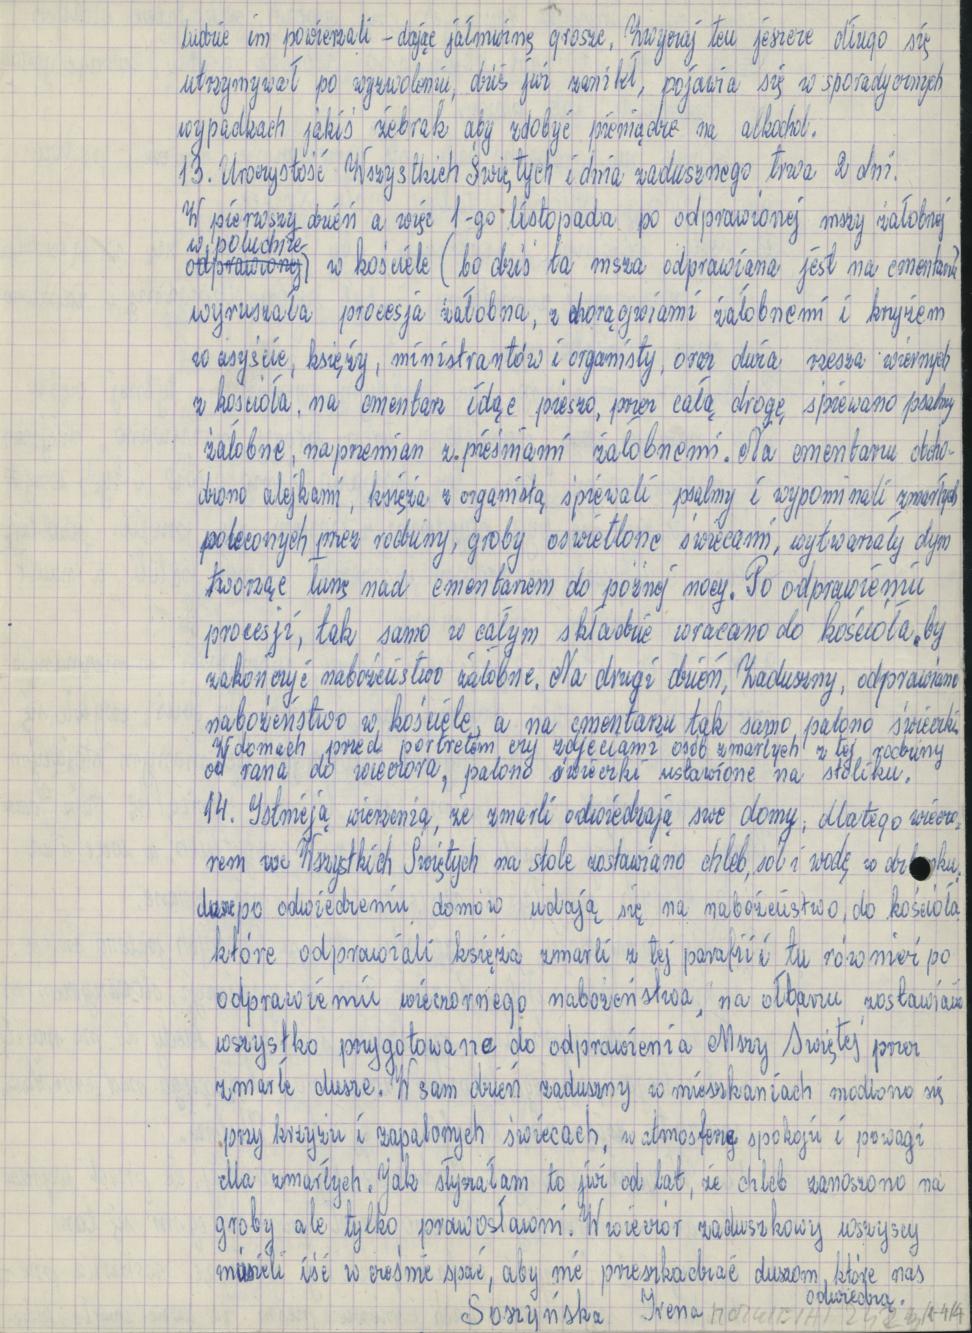 ludzie im powierzali – dając jałmużnę grosze. Zwyczaj ten jeszcze długo się
utrzymywał po wyzwoleniu, dziś już zanikł, pojawia się w sporadycznych
wypadkach jakiś żebrak aby zdobyć pieniądze na alkohol.
13. Uroczystość Wszystkich Świętych i dnia zadusznego trwa 2 dni.
W pierwszy dzień a więc 1-go listopada po odprawionej mszy żałobnej
w południe
odprawionej) w kościele (bo dziś ta msza odprawiana jest na cmentarzu
wyruszała procesja żałobna, z chorągwiami żałobnemi i krzyżem
w asyście, księży, ministrantów i organisty, oraz duża rzesza wiernych
z kościoła, na cmentarz idąc pieszo, przez całą drogę, śpiewano psalmy
żałobne, naprzemian z pieśniami żałobnemi. Na cmentarzu obcho-
dzono alejkami, księża z organistą śpiewali psalmy i wypominali zmarłych
poleconych przez rodziny, groby oświetlone świecami, wytwarzały dym
tworząc łunę nad cmentarzem do późnej nocy. Po odprawieniu
procesji, tak samo w całym składzie wracano do kościoła, by
zakończyć nabożeństwo żałobne. Na drugi dzień, Zaduszny, odprawiano
nabożeństwo w kościele, a na cmentarzu tak samo palono świeczki.
W domach przed portretem czy zdjęciami osób zmarłych z tej rodziny
od rana do wieczora, palono świeczki ustawione na stoliku.
14. Istnieją wierzenia, że zmarli odwiedzają swe domy, dlatego wieczo-
rem we Wszystkich Świętych na stole zostawiano chleb, sól i wodę w dzbanku,
dusze po odwiedzeniu domów udają się na nabożeństwo, do kościoła
które odprawiali księża zmarli z tej parafii i tu również po
odprawieniu wieczornego nabożeństwa, na ołtarzu zostawiano
wszystko przygotowane do odprawienia Mszy Świętej przez
zmarłe dusze. W sam dzień zaduszny w mieszkaniach modlono się
przy krzyżu i zapalonych świecach, w atmosferę spokoju i powagi
dla zmarłych. Jak słyszałam to już od lat, że chleb zanoszono na
groby ale tylko prawosławni. W wieczór zaduszkowy wszyscy
musieli iść wcześnie spać, aby nie przeszkadzać duszom, które nas
odwiedzą.
Soszyńska Irena